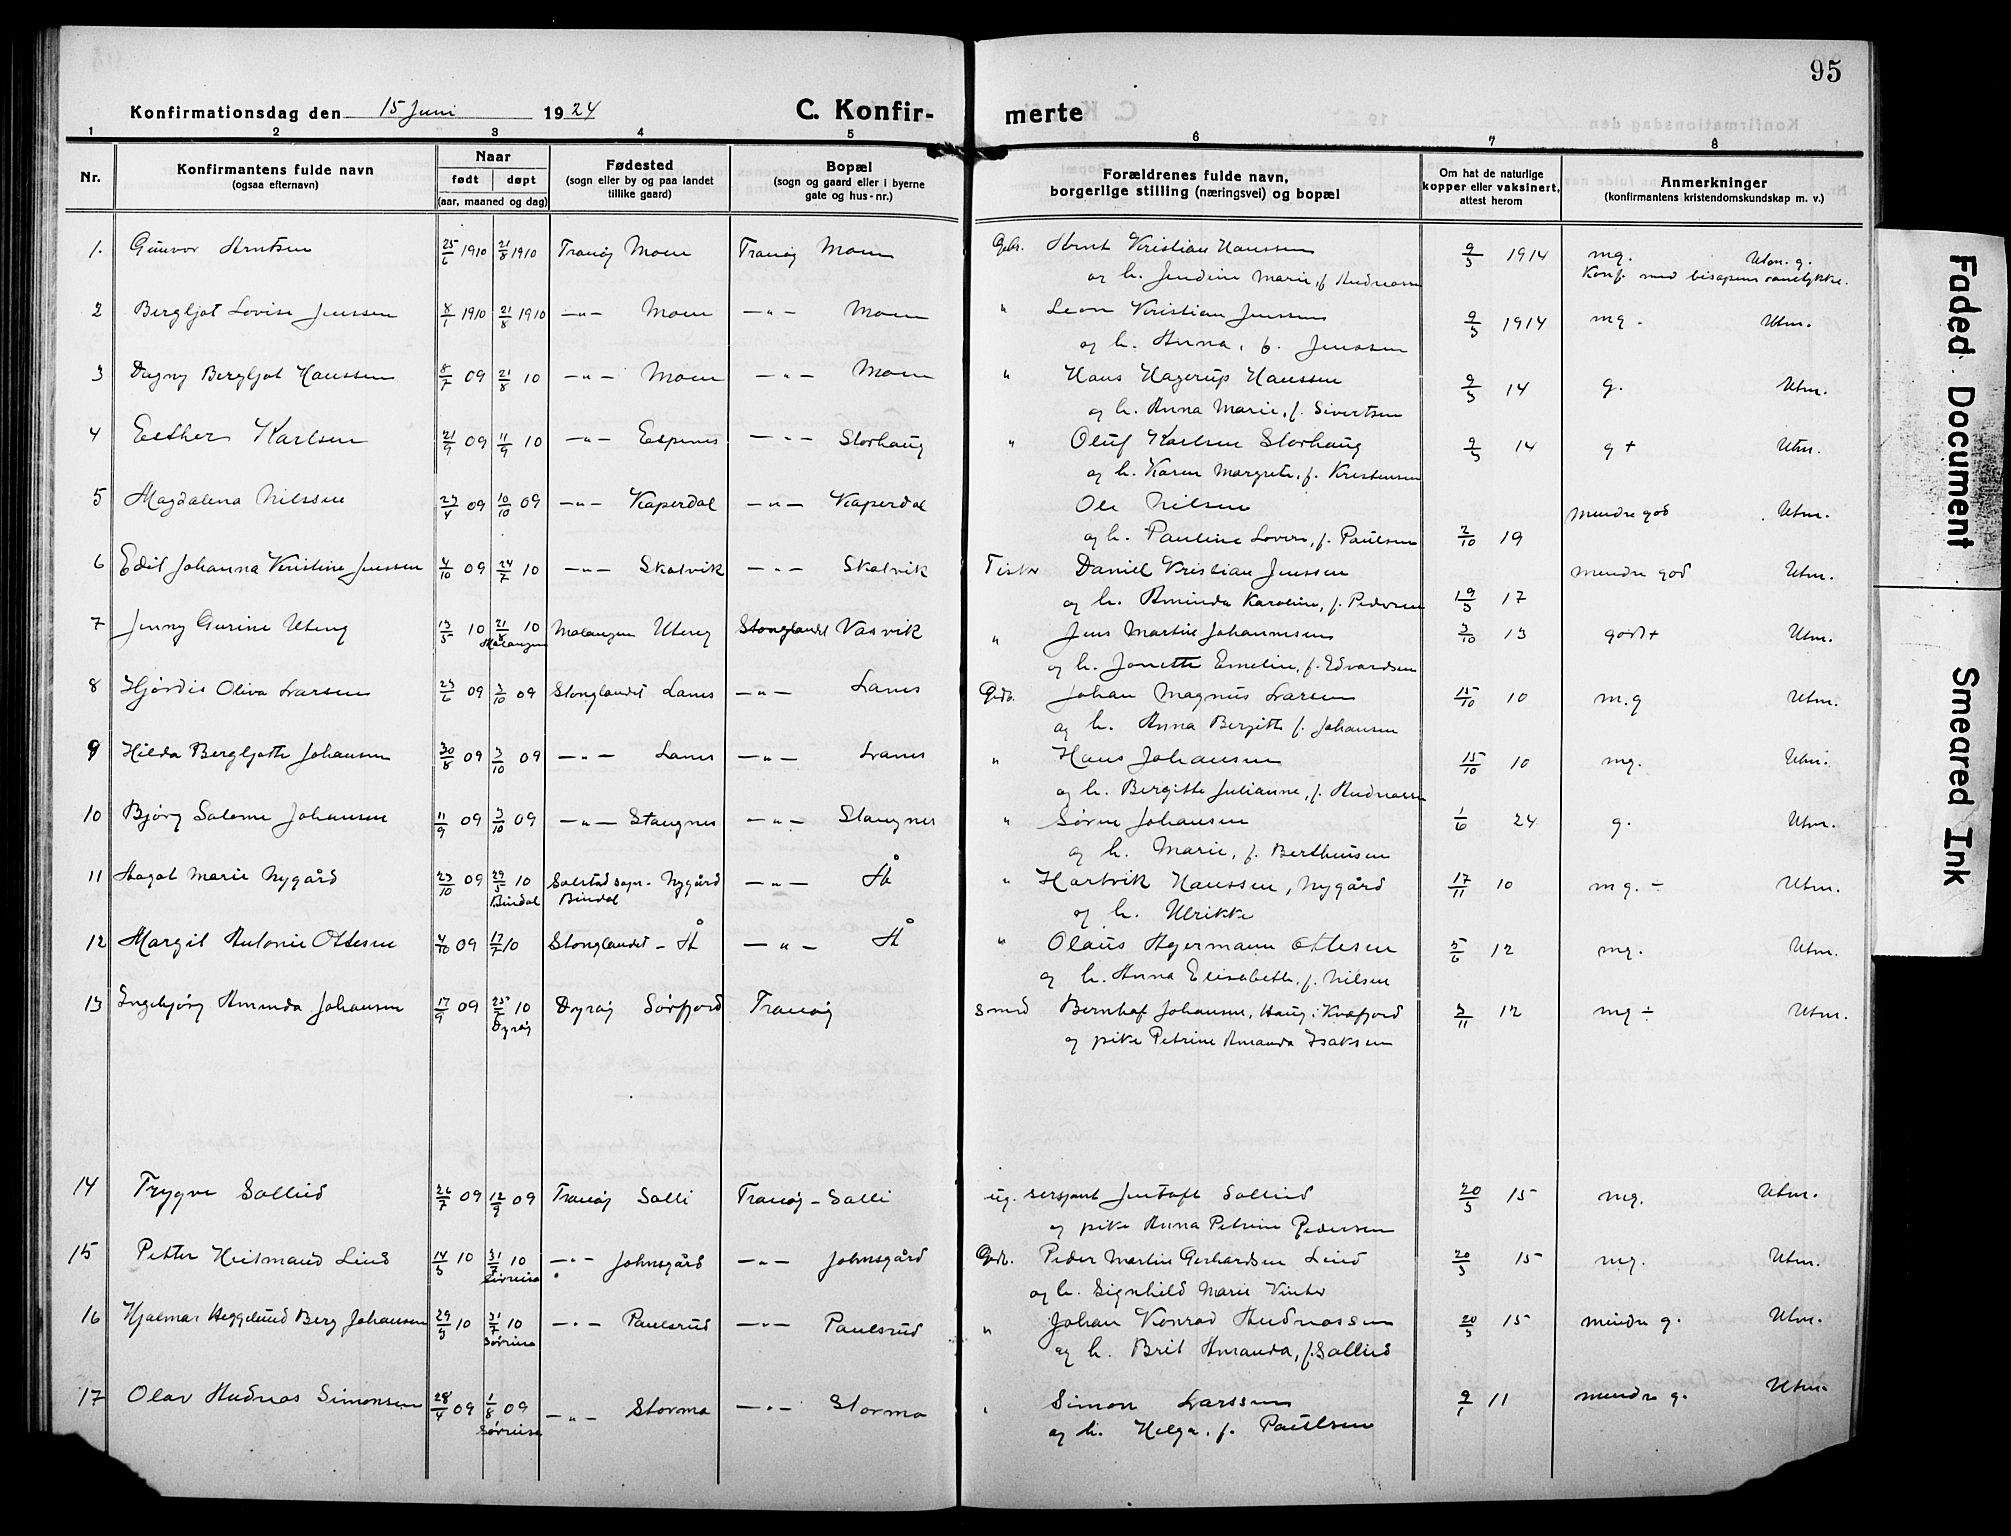 95
Konfirmationsdag den 15 Juni 1924 C. Konfirmerte
1 2 3 4 5 6 7 8
Nr. Konfirmantens fulde navn (ogsaa efternavn) Naar født døpt (aar, maaned og dag) Fødested (sogn eller by og paa landet tillike gaard) Bopæl (sogn og gaard eller i byerne gate og hus-nr.) Forældrenes fulde navn, borgerlige stilling (næringsvei) og bopæl Om hat de naturlige kopper eller vaksinert, attest herom Anmerkninger (konfirmantens kristendomskundskap m. v.)
1. Gunvor Arntsen 25/6 1910 21/8 1910 Tranøy Moen Tranøy Moen Gbr. Arnt Kristian Hanssen 9/5 1914 mg. Utm. g.
og h. Jendine Marie, f. Andreasen Konf. med bispens samtykke.
2 Bergljot Lovise Jenssen 8/1 1910 21/8 1910 —"— Moen —"— Moen " Leon Kristian Jenssen 9/5 1914 mg. Utm.
og h. Anna, f. Jenssen
3 Dagny Bergljot Hanssen 8/7 09 21/8 10 —"— Moen —"— Moen " Hans Hagerup Hanssen 9/5 14 g. Utm.
og h. Anna Marie, f. Sivertsen
4 Esther Karlsen 21/9 09 11/9 10 —"— Espenes —"— Storhaug " Oluf Karlsen Storhaug 9/5 14 g+ Utm.
og h. Karen Margrete, f. Kristensen
5 Magdalena Nilssen 23/4 09 10/10 09 —"— Kaperdal —"— Kaperdal Ole Nilsen mindre god Utm.
og h. Pauline Lovise, f. Paulsen 2/10 19
6 Edit Johanna Kristine Jenssen 4/10 09 24/7 10 —"— Skatvik —"— Skatvik Fisker Daniel Kristian Jenssen mindre god Utm.
og h. Aminda Karoline, f. Pedersen 19/5 17
7 Jenny Gurine Uteng 13/5 10 21/8 10 Malangen Uteng Stonglandet Vasvik " Jens Martin Johannesen 3/10 13 god+ Utm.
Malangen og h. Jonette Emelie, f. Edvardsen
8 Hjørdis Oliva Larsen 23/6 09 3/10 09 Stonglandet Lanes —"— Lanes Gbr. Johan Magnus Larsen 15/10 10 m.g Utm.
og h. Anna Bergitte f. Johansen
9 Hilda Bergljotte Johansen 30/8 09 3/10 09 —"— Lanes —"— Lanes " Hans Johansen 15/10 10 mg. Utm.
og h. Bergitte Julianne, f. Andreassen
10 Bjørg Salome Johansen 11/9 09 3/10 09 —"— Stangnes —"— Stangnes " Søren Johansen 1/6 24 g. Utm.
og h. Marie, f. Berthensen
11 Hagot Marie Nygård 23/10 09 29/5 10 Solstad sogn - Nygård —"— Å " Hartvik Hanssen, Nygård 17/11 10 mg. ÷ Utm.
Bindal Bindal og h. Ulrikke
12 Margit Antonie Ottesen 4/10 09 17/7 10 Stonglandet - Å —"— Å " Olaus Hjermann Ottesen 5/6 12 mg. Utm.
og h. Anna Elisabeth, f. Nilsen
13 Ingebjørg Aminda Johansen 17/9 09 25/6 10 Dyrøy Sørfjord Tranøy Smed Bernhof Johansen, Haug i Kvæfjord 3/11 12 mg ÷ Utm.
Dyrøy og pike Petrine Amanda Isaksen
14 Trygve Sollied 26/7 09 12/9 09 Tranøy Solli Tranøy - Solli ug. sersjant Justoft Sollied 20/5 15 mg. Utm.
og pike Anna Petrine Pedersen
15 Petter Heitmand Lind 14/5 10 31/7 10 —"— Johnsgård —"— Johnsgård Gbr. Peder Martin Gerhardsen Lind 20/5 15 mg. Utm.
Sørreisa og h. Signhild Marie Vinter
16 Hjalmar Heggelund Berg Johansen 29/3 10 31/7 10 —"— Paulsrud —"— Paulsrud " Johan Konrad Andreassen 20/5 15 mindre g. Utm.
Sørreisa og h. Brit Amanda, f. Sollied
17 Olav Andreas Simonsen 28/4 09 1/8 09 —"— Stormo —"— Stormo " Simon Larssen 9/1 11 mindre g. Utm.
Sørreisa og h. Helga, f. Paulsen
Faded Document
Smeared Ink